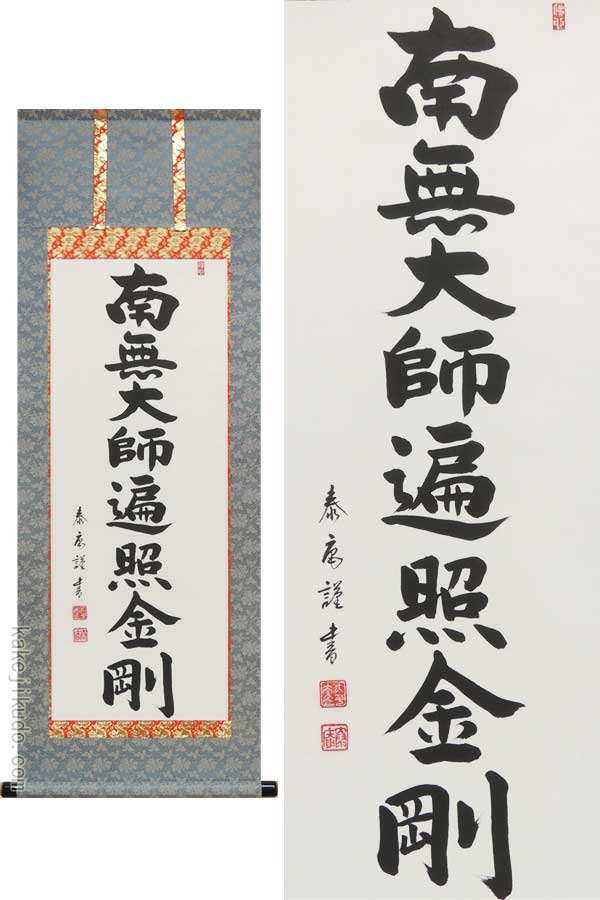 南無大師遍照金剛
泰彦謹書
南無大師遍照金剛
泰彦謹書
kakejikudo.com